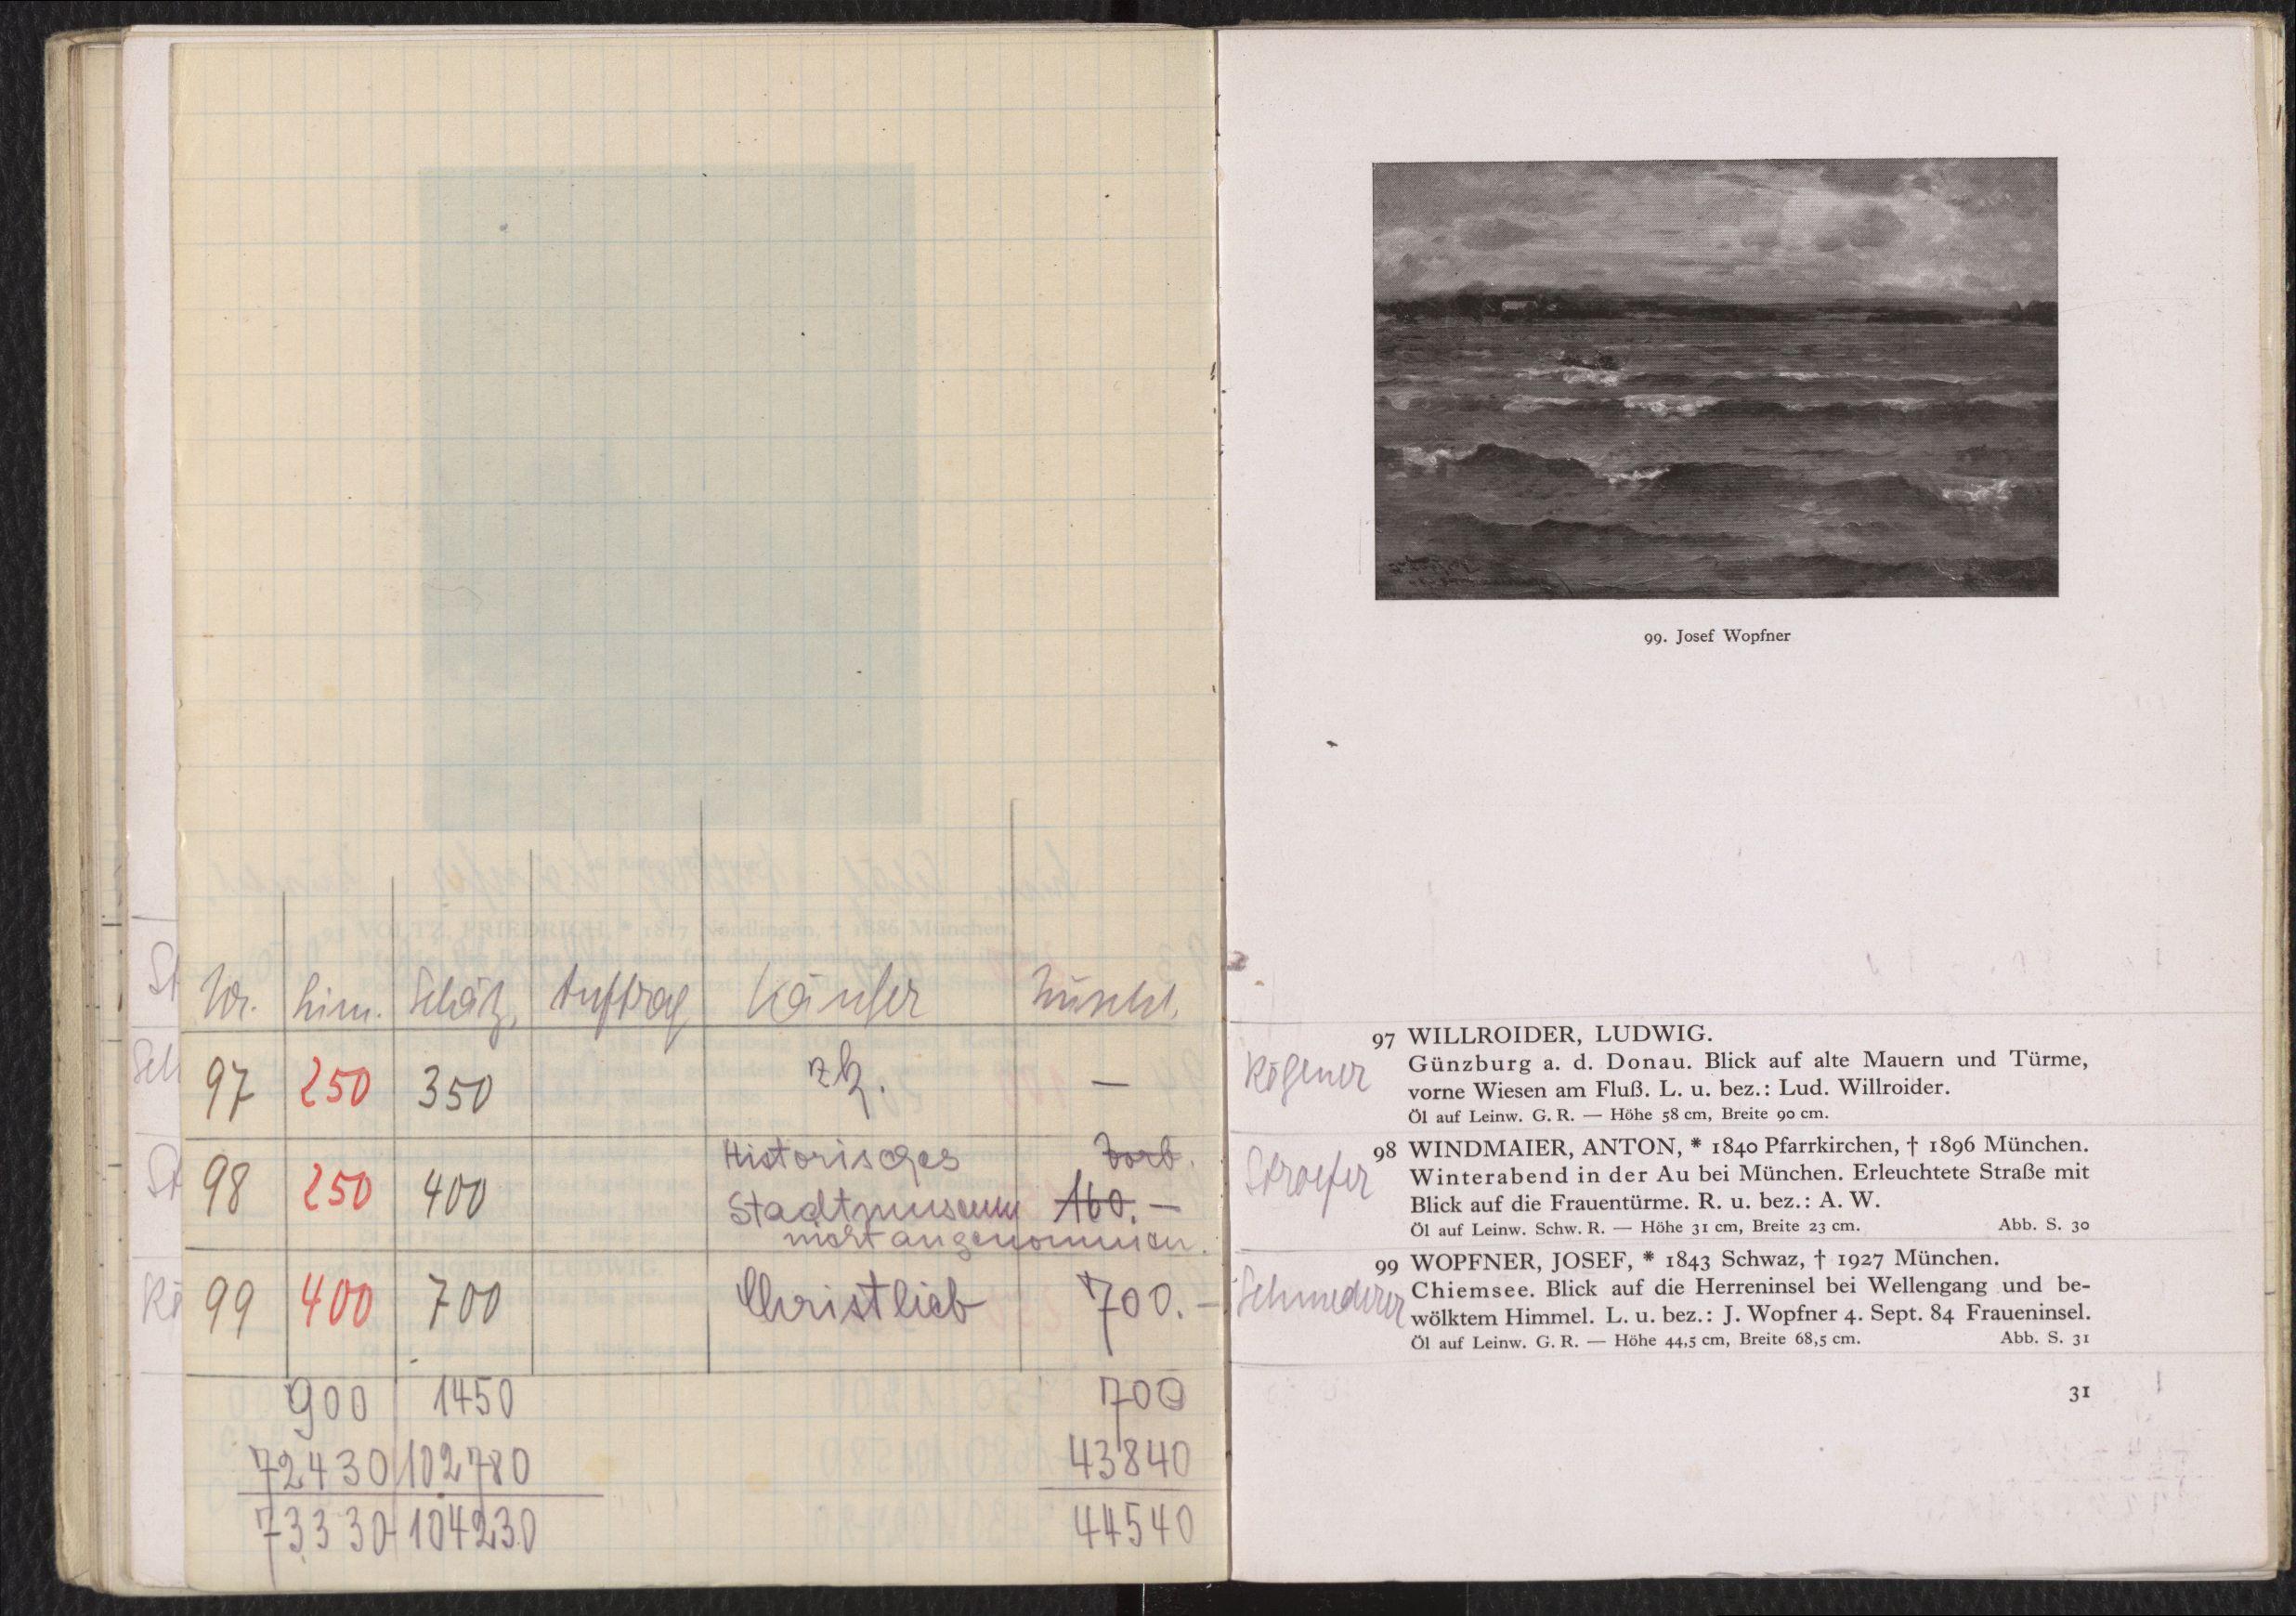 Nr. Lim. Schätz. Auftrag Käufer Zuschl.
97 250 350 zk. —
98 250 400 Historisches Vorb.
Stadtmuseum 160.—
nicht angenommen.
99 400 700 Christlieb 700.—
900 1450 700
72430 102780 43840
73330 104230 44540
St
Sch
St
Kö
99. Josef Wopfner
97 WILLROIDER, LUDWIG.
Günzburg a. d. Donau. Blick auf alte Mauern und Türme,
vorne Wiesen am Fluß. L. u. bez.: Lud. Willroider.
Öl auf Leinw. G. R. — Höhe 58 cm, Breite 90 cm.
Stroefer
98 WINDMAIER, ANTON, * 1840 Pfarrkirchen, † 1896 München.
Winterabend in der Au bei München. Erleuchtete Straße mit
Blick auf die Frauentürme. R. u. bez.: A. W.
Öl auf Leinw. Schw. R. — Höhe 31 cm, Breite 23 cm. Abb. S. 30
Schmederer
99 WOPFNER, JOSEF, * 1843 Schwaz, † 1927 München.
Chiemsee. Blick auf die Herreninsel bei Wellengang und be-
wölktem Himmel. L. u. bez.: J. Wopfner 4. Sept. 84 Fraueninsel.
Öl auf Leinw. G. R. — Höhe 44,5 cm, Breite 68,5 cm. Abb. S. 31
31